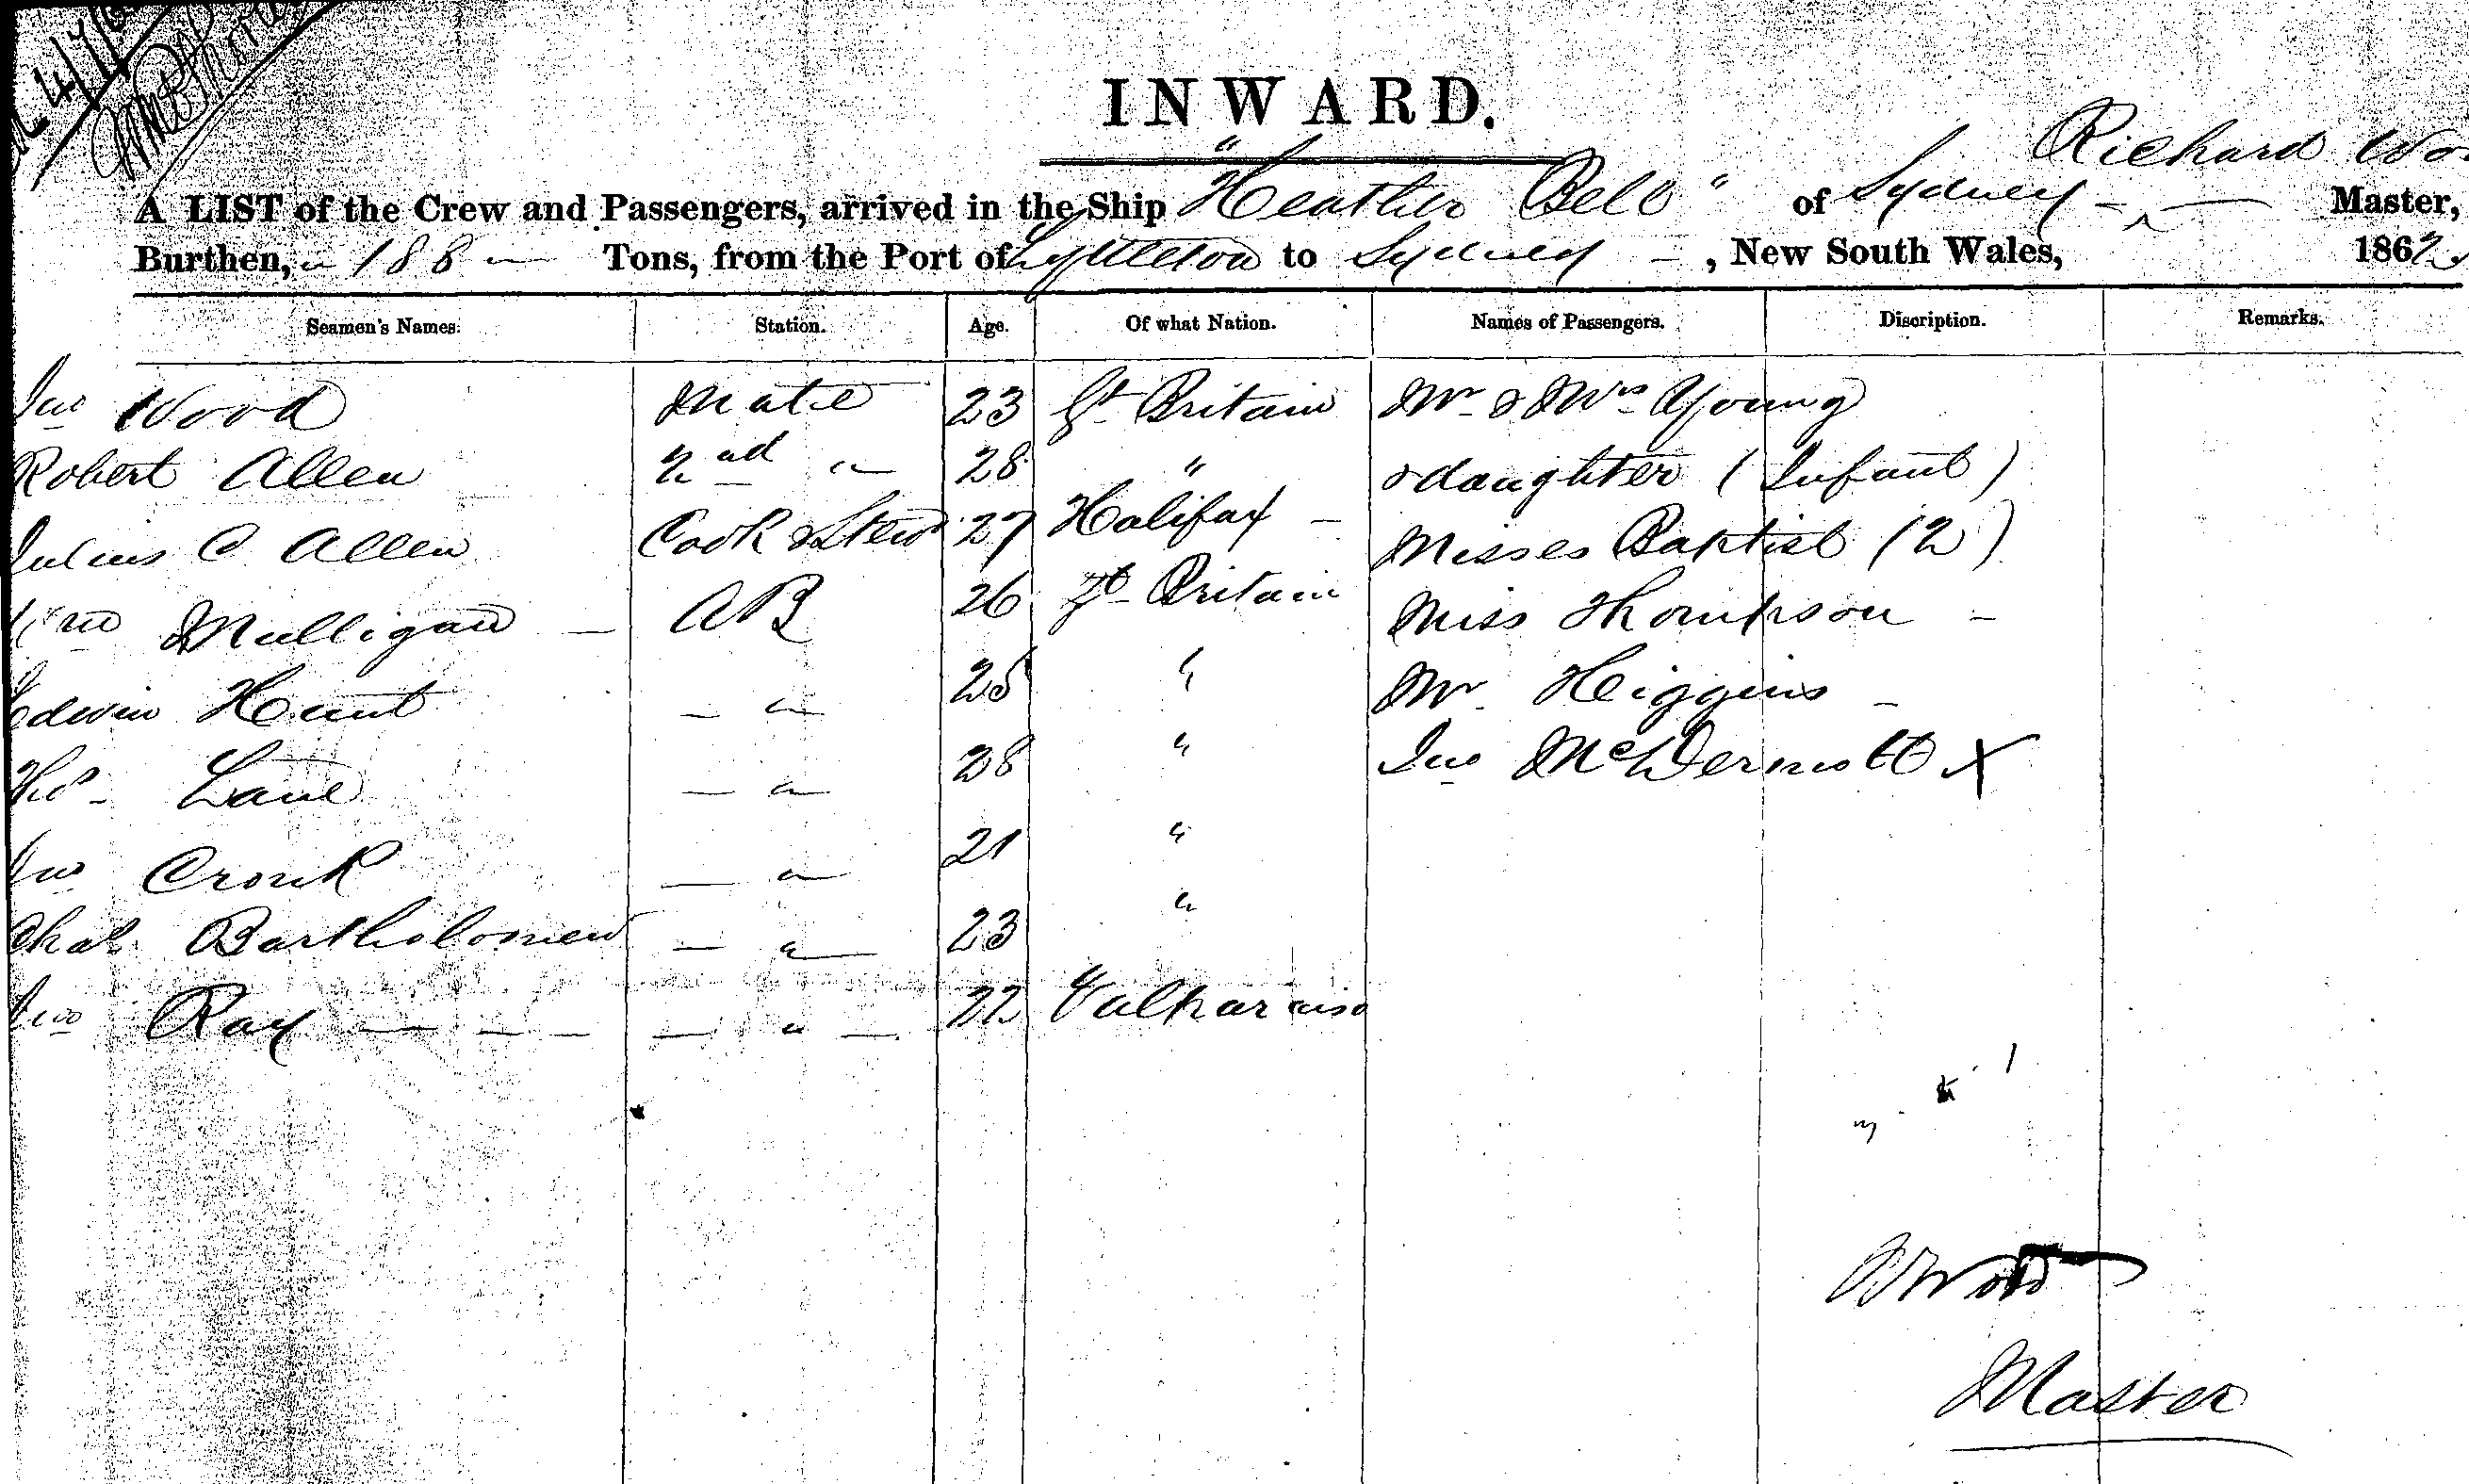 INWARD.
Richard
A LIST of the Crew and Passengers, arrived in the Ship "Heather Bell" of Sydney - Master,
Burthen, 188 Tons, from the Port of Lyttleton to Sydney - , New South Wales, 1862
Seamen's Names. Station. Age. Of what Nation. Names of Passengers. Discription. Remarks.
Jno Wood Mate 23 Gt Britain Mr & Mrs Young
Robert Allen 2nd " 28 " & daughter (Infant)
Julius C Allen Cook & Stew 27 Halifax - Misses Baptist (2)
Wm Mulligan - AB 26 Gt Britain Miss Thompson -
Edwin Hunt - " 25 " Mr Higgins -
Thos Lane - " 28 " Jno McDermott X
Jno Cronk - " 21 "
Chas Bartholomew - " 23 "
Jno Ray - - - - " - 22 Valparaiso
R Wood
Master